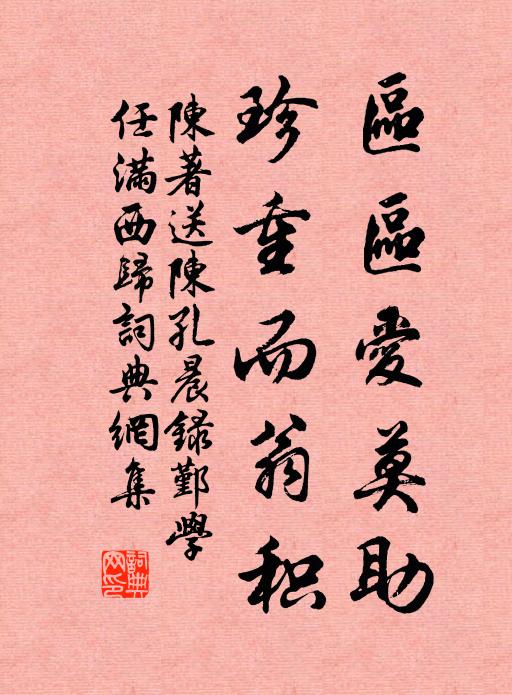 區區愛莫助
珍重而翁积
陳著送陳孔晨錄鄞學
任滿西歸詞典網集
詞典
网印